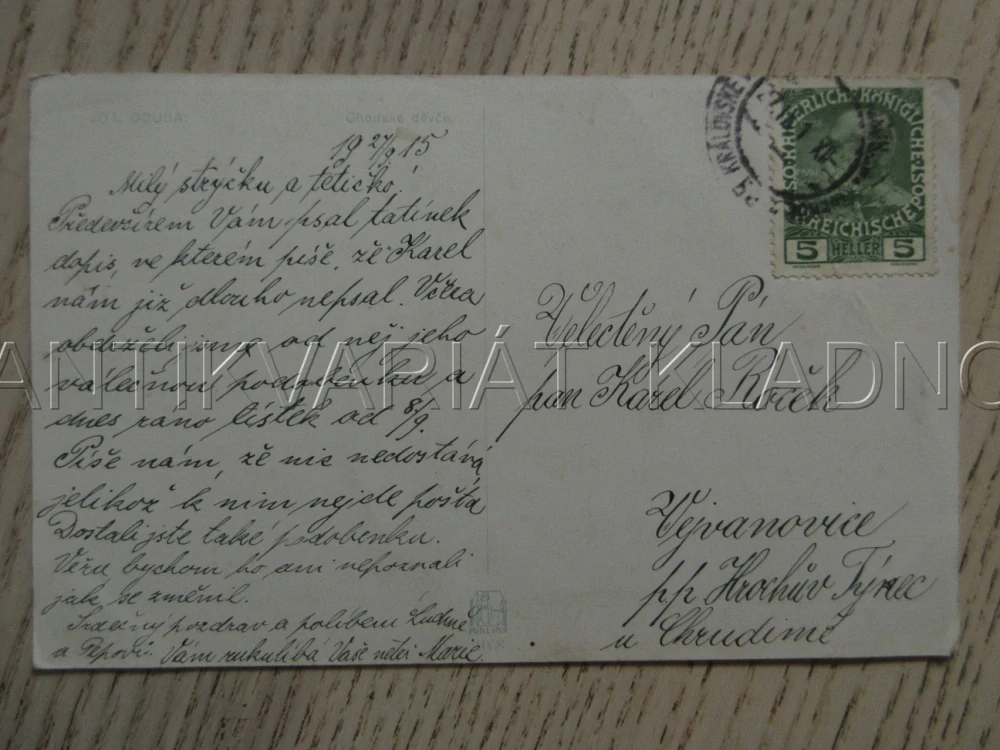 OT. DOUBA:
Chodské děvče.
19 27/9 15
Milý strýčku a tetičko!
Předevčírem Vám psal tatínek
dopis, ve kterém píše, že Karel
nám již dlouho nepsal. Včera
obdrželi jsme od něj jeho
válečnou podobenku a
dnes ráno lístek od 8/9.
Píše nám, že nic nedostává
jelikož k nim nejde pošta
Dostali jste také podobenku.
Věru bychom ho ani nepoznali
jak se změnil.
Srdečný pozdrav a políbení
a Pepovi. Vám rukulíbá Vaše neteř Marie
KAISERLICH KÖNIGLICHE
ÖSTERREICHISCHE POST
5 HELLER 5
KRÁLOVSKÉ
Velectěný Pán
pan Karel Roček
Vejvanovice
pp Hrochův Týnec
u Chrudimě
ANTIKVARIÁT KLADNO